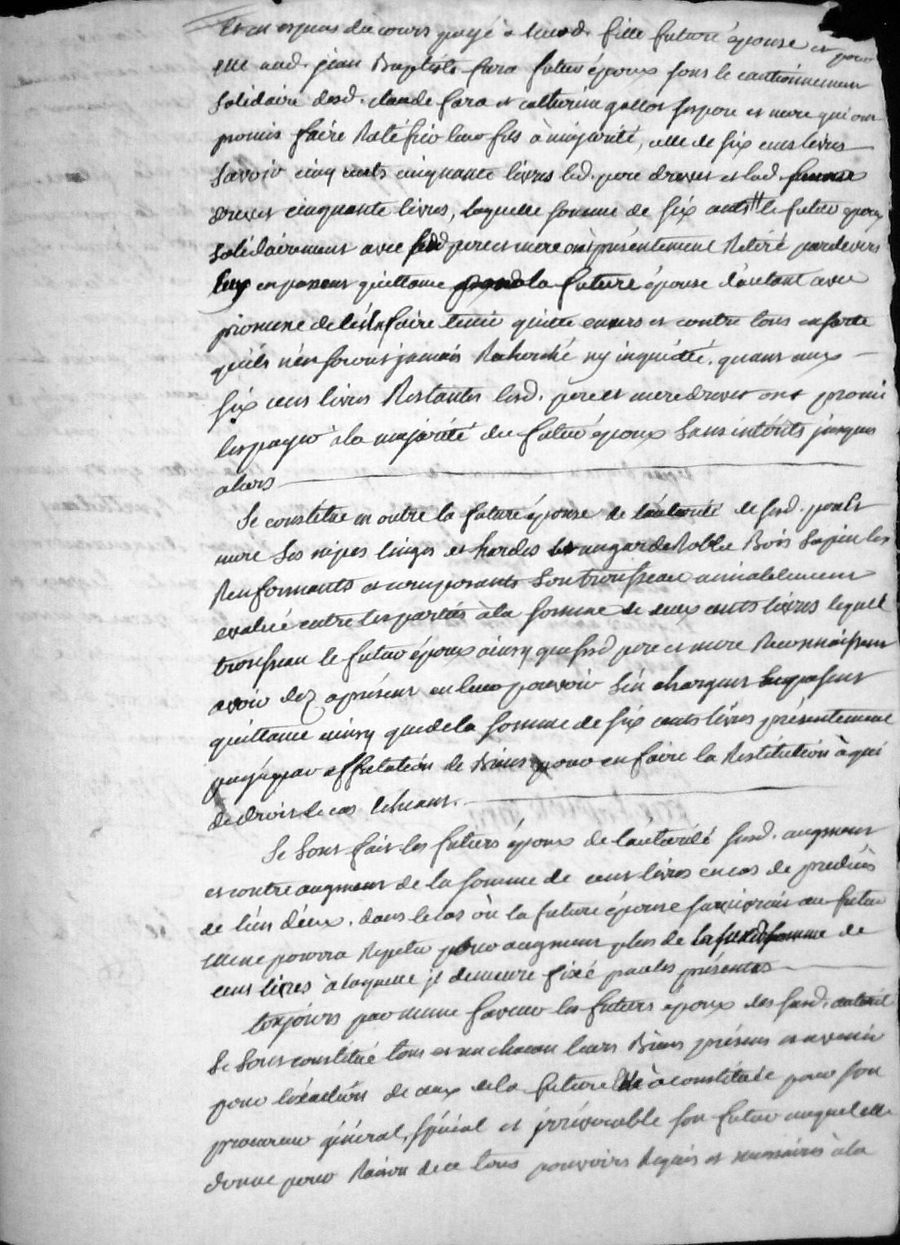 et en espces du cours payé à lad. fille future épouse et pour
elle aud. jean Baptiste fara futur époux sous le cautionnement
solidaire desd. claude fara et catherine gallot ses pere et mere qui ont
promis faire Ratéfier leur fils à majorité, celle de six cents livres
savoir cinq cents cinquante livres led. pere drevet et lad.
drevet cinquante livres, laquelle somme de six cents ₶ le futur epoux
solidairement avec sesd pere et mere ont présentement Retiré pardevers
Eux en passent quittance la future épouse d'autant avec
promesse de l'en faire tenir quitte envers et contre tous ensorte
quels n'en seront jamais Recherché ny inquiété. quant aux
six cens livres Restantes lesd. pere et mere drevet ont promis
les payer à la majorité du futur époux sans intérêts jusques
alors
Se constitue en outre la future épouse de l'autorité de sesd. pere et
mere ses nipes linges et hardes un garde Robbe Bois sapin les
Renfermants et composants son trousseau amiablement
evalué entre les parties à la somme de deux cents livres lequel
trousseau le futur époux ainsy que sesd pere et mere Reconnoissent
avoir dez aprésent en leur pouvoir s'en chargent en passent
quittance ainsy que de la somme de six cents livres présentement
payé par affectation de Biens pour en faire la Restitution à qui
de droit le cas echeant.
Se sont fait les futurs époux de l'autorité susd. augment
et contre augment de la somme de cent livres en cas de predécès
de l'un d'eux. dans le cas où la future épouse survivroit au futur
elle ne pourra Repeter pour augment plus de la susd somme de
cent livres à laquelle il demeure fixé par les présentes
toujours par meme faveur les futurs époux des susd. autorité
Se sont constitué tous et un chacun leurs Biens présens et avenir
pour l'exaction de ceux de la future elle a constitué pour son
procureur général, spécial et irrévocable son futur auquel elle
donne pour Raison de ce tous pouvoirs Requis et necessaires à la